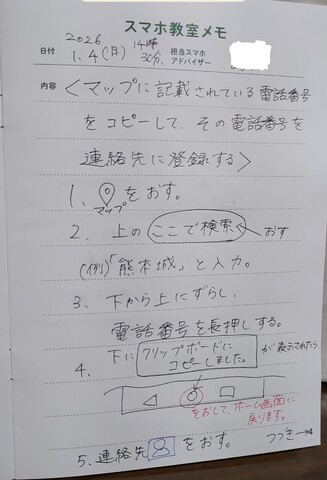 スマホ教室メモ
2026 14時
日付 1.4(月) 30分. 担当スマホアドバイザー
内容 <マップに記載されている電話番号
をコピーして、その電話番号を
連絡先に登録する>
1、 をおす。
マップ
2. 上の ここで検索 おす
(例)「熊本城」と入力。
3、下から上にずらし、
電話番号を長押しする。
4. 下に クリップボードに コピーしました。 が表示されたら
をおして、ホーム画面に
戻ります。
5、連絡先 をおす。 つづき→